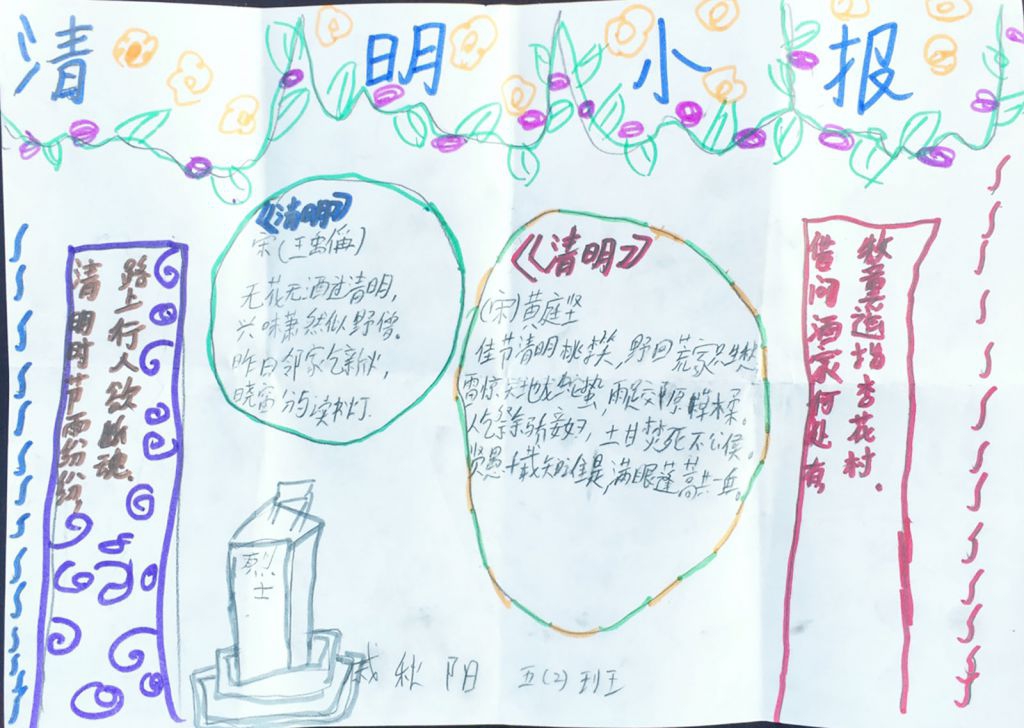 清明小报
清明时节雨纷纷,
路上行人欲断魂.
《清明》
宋(王禹偁)
无花无酒过清明,
兴味萧然似野僧.
昨日邻家乞新火,
晓窗分与读书灯.
《清明》
(宋)黄庭坚
佳节清明桃李笑,野田荒冢只生愁
雷惊天地龙蛇蛰,雨足郊原草木柔。
人乞祭余骄妾妇,士甘焚死不公侯。
贤愚千载知谁是,满眼蓬蒿共一丘。
借问酒家何处有,
牧童遥指杏花村.
烈士
秋阳 五(2)班